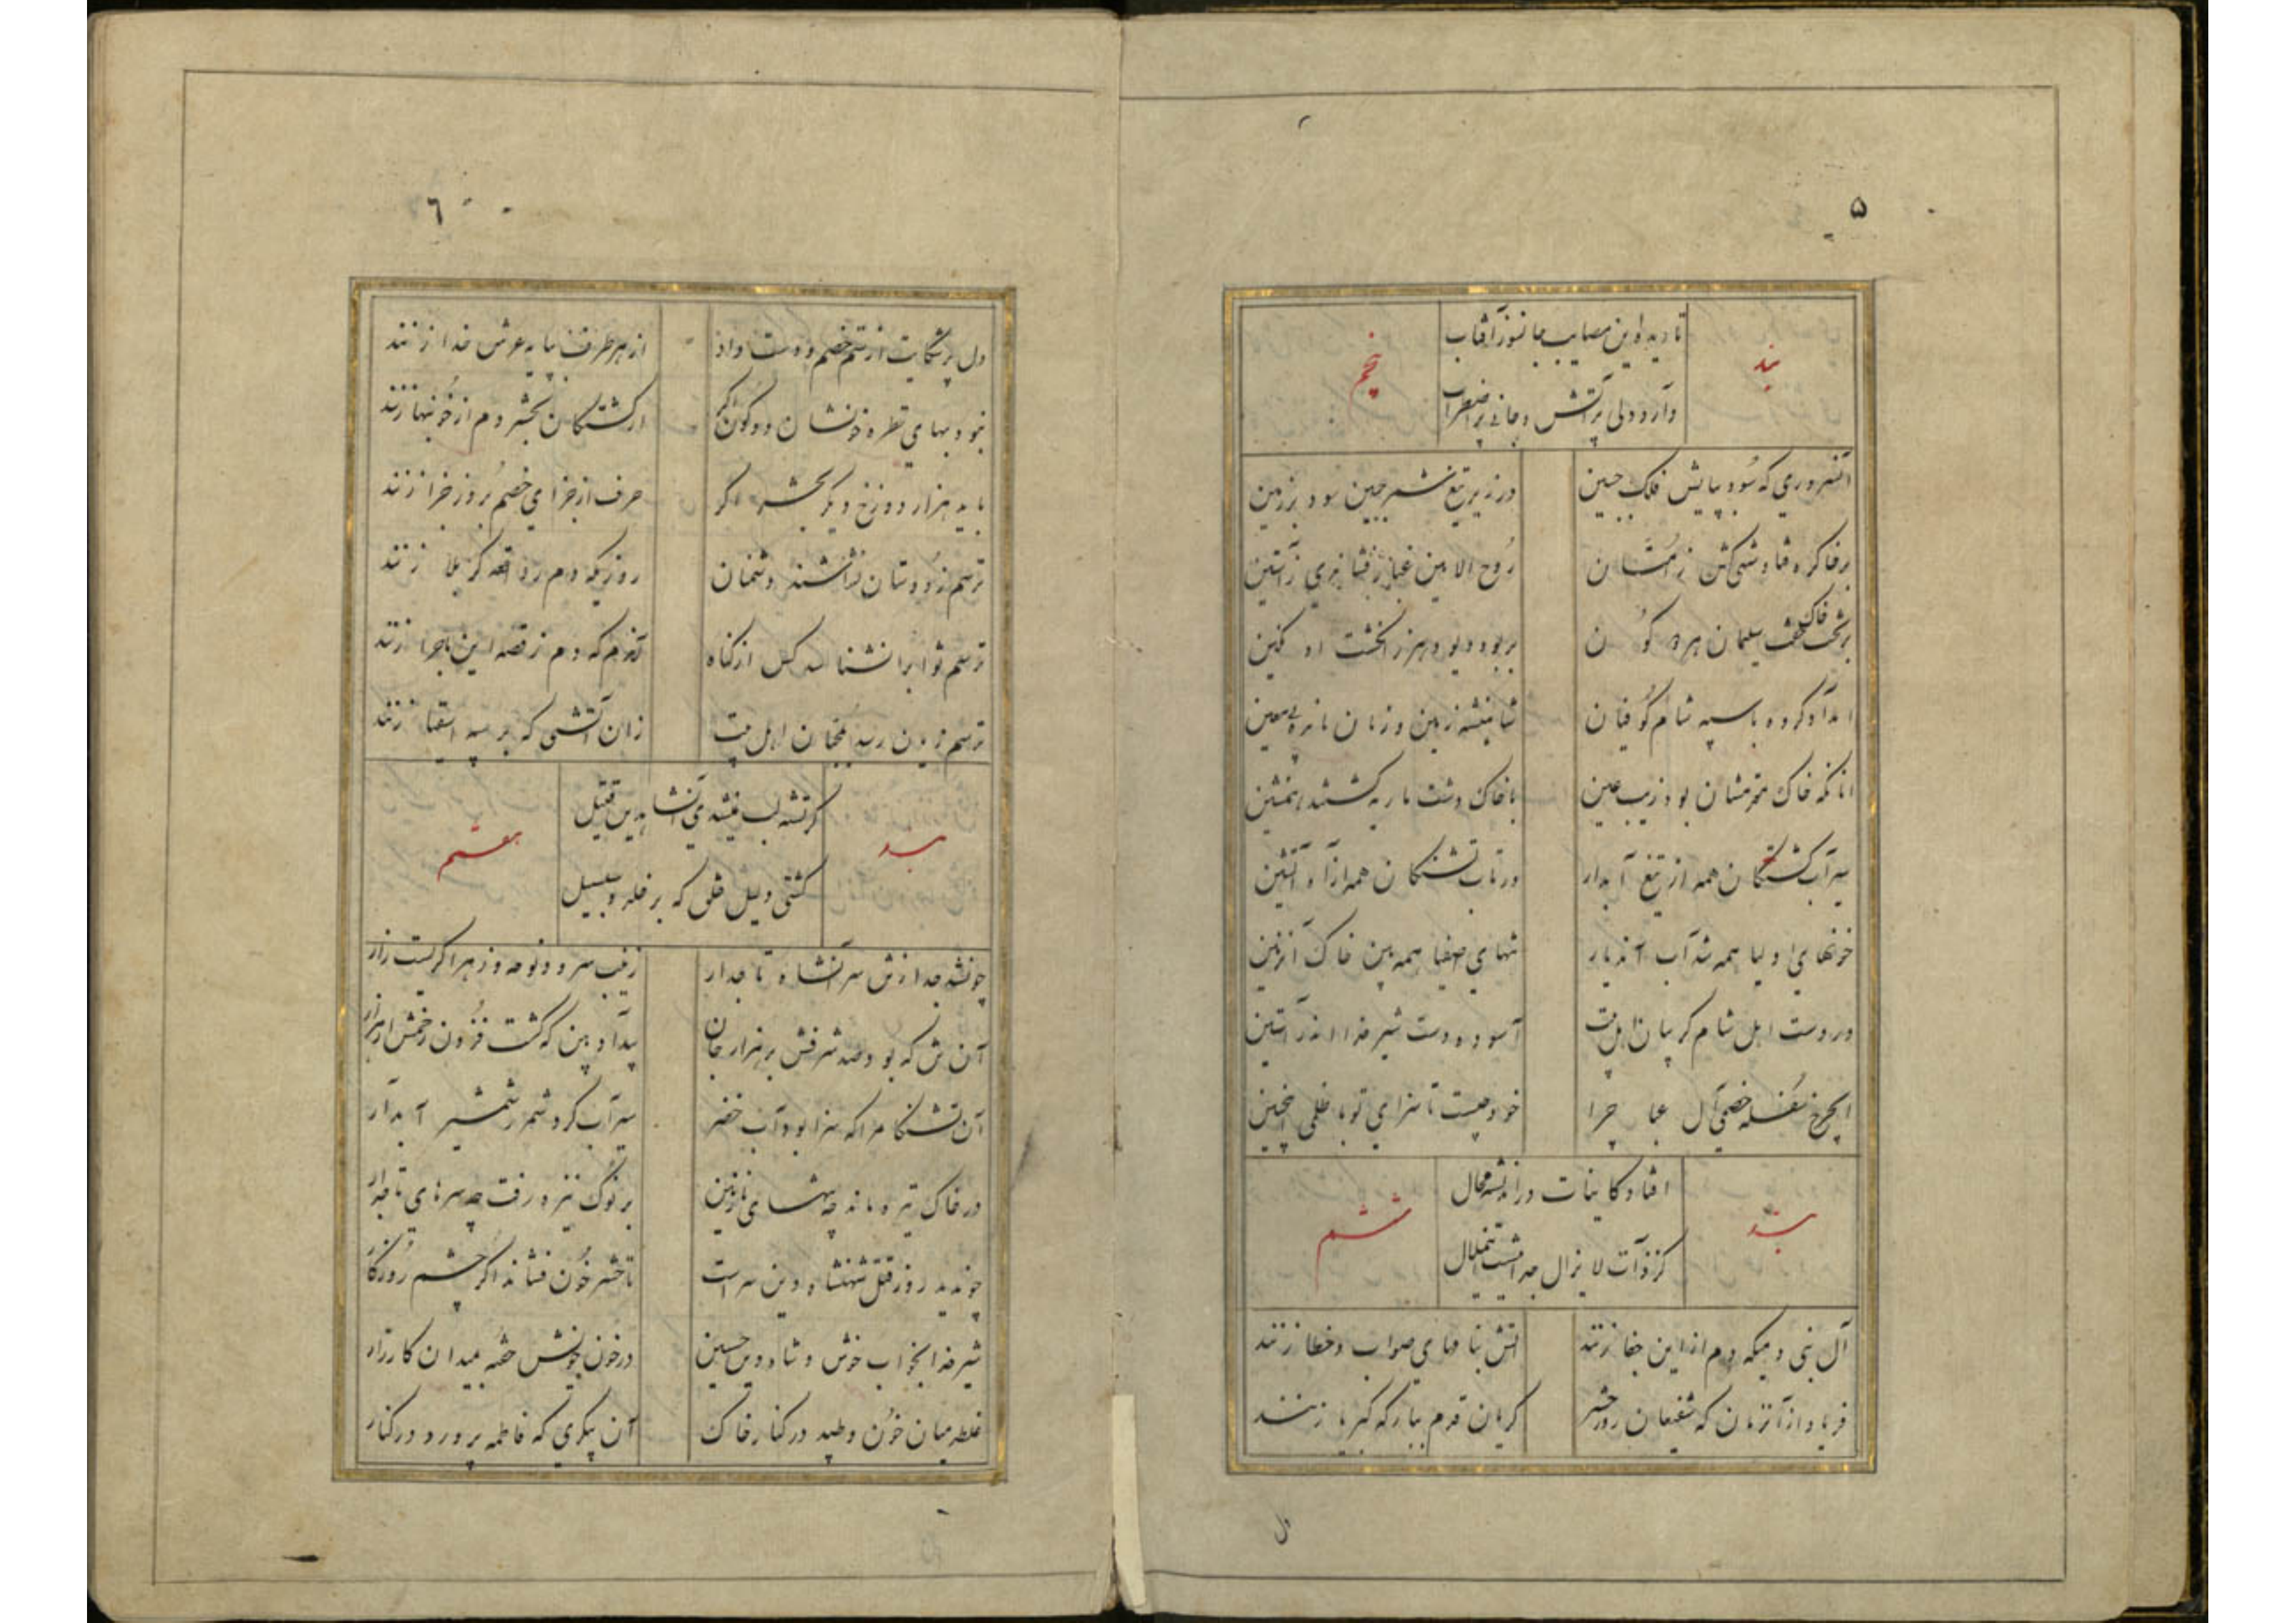 ۵
تا دید این مصایب جانسوز آفتاب
بند
پنجم
دارد دلی پر آتش و جانی پر اضطراب
آنسروری که سود بپایش فلک جبین
در زیر تیغ شمر جبین سود بر زمین
بر خاک ره فتاد
روح الامین غبار زآستین
سلیمان هر دو کون
بربود دیو دهر ز انگشت او نگین
کرده با سپه شام کوفیان
شاهنشه زمین و زمان مانده بی معین
آنانکه خاک مقدمشان بود زیب عین
با خاک دشت ماریه گشتند همنشین
سیرآب کشتگان همه از تیغ آبدار
در تاب تشنگان همه از آه آتشین
خونهای اولیا همه شد آب آندیار
تنهای اصفیا همه بین خاک آنزمین
در دست اهل شام گریبان اهل بیت
آسوده دست شیر خدا اندر آستین
ایچرخ سفله خصمی آل عبا چرا
خود چیست تا سزای تو با ظلمی اینچنین
افتاد کاینات در اندیشه محال
بند
ششم
کز ذات لایزال جدا نیست
آل نبی دمیکه دم از این جفا زنند
آتش بنامهای صواب و خطا زنند
فریاد از آنزمان که شفیعان روز حشر
گریان قدم ببارگه کبریا زنند
۶
دل پر شکایت از ستم خصم و دست داد
از هر طرف بپایه عرش خدا زنند
نبود بهای قطره خونشان دو کون اگر
از کشتگان بحشر دم از خونبها زنند
باید هزار دوزخ دیگر بحشر اگر
حرف از جزای خصم بروز جزا زنند
ترسم ز دوستان نشانند دشمنان
روزیکه دم ز واقعه کربلا زنند
ترسم ثواب را نشناسد کس از گناه
آندم که دم ز قصه این ماجرا زنند
ترسم اهل بیت
زان آتشی که بر سپه اشقیا زنند
گر تشنه لب نمیشدی آنشاه دین قتیل
بند
هفتم
کشتی دلیل خلق که بر خلد و سلسبیل
چونشد جدا ز تن سر آنشاه تاجدار
زینب سرود نوحه و زهرا گریست زار
آن تن که بود صد شرفش بر هزار جان
بیداد بین که گشت فزون زخمش از هزار
آن تشنکام را که سزا بود آب خضر
سیرآب کرد شمر ز شمشیر آبدار
در خاک تیره ماند چه تنهای نازنین
بر نوک نیزه رفت چه سرهای تاجدار
چون دید روز قتل شهنشاه دین سزاست
تا حشر خون فشاند اگر چشم روزگار
شیر خدا بخواب خوش و شاه دین حسین
در خون خویش خفته بمیدان کارزار
غلطد میان خون و طپد در کنار خاک
آن پیکری که فاطمه پرورد در کنار